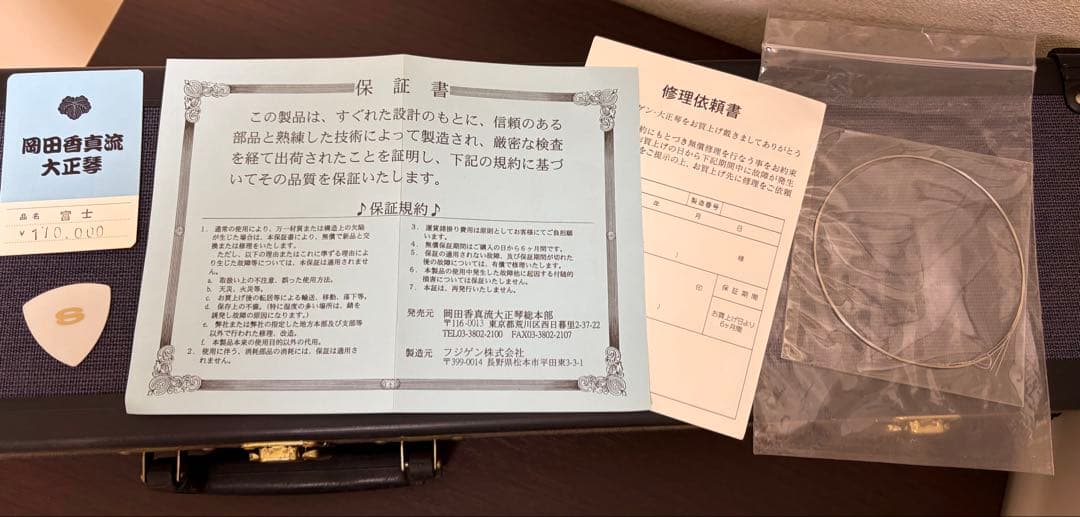 岡田香真流
大正琴
品名 富士
¥110,000
S
保証書
この製品は、すぐれた設計のもとに、信頼のある
部品と熟練した技術によって製造され、厳密な検査
を経て出荷されたことを証明し、下記の規約に基づ
いてその品質を保証いたします。
♪保証規約♪
1. 通常の使用により、万一材質または構造上の欠陥
が生じた場合は、本保証書により、無償で新品と交
換または修理をいたします。
ただし、以下の理由またはこれに準ずる理由によ
り生じた故障等については、本保証は適用されませ
ん。
a. 取扱い上の不注意、誤った使用方法。
b. 天災、火災等。
c. お買上げ後の転居等による輸送、移動、落下等。
d. 保存上の不備。(特に湿度の多い場所は、錆を
誘発し故障の原因になります。)
e. 弊社または弊社の指定した地方本部及び支部等
以外で行われた修理、改造。
f. 本製品本来の使用目的以外の代用。
2. 使用に伴う、消耗部品の消耗には、保証は適用さ
れません。
3. 運賃諸掛り費用は原則としてお客様にてご負担願
います。
4. 無償保証期間はご購入の日から6ヶ月間です。
5. 保証の適用されない故障、及び保証期間が切れた
後の故障については、有償で修理いたします。
6. 本製品の使用中発生した故障他に起因する付随的
損害については保証いたしません。
7. 本証は、再発行いたしません。
発売元 岡田香真流大正琴総本部
〒116-0013 東京都荒川区西日暮里2-37-22
TEL03-3802-2100 FAX03-3802-2107
製造元 フジゲン株式会社
〒399-0014 長野県松本市平田東3-3-1
修理依頼書
ゲン・大正琴をお買上げ戴きましてありがとう
約にもとづき無償修理を行なう事をお約束
お買上げの日から下記期間中に故障が発生
をご提示の上、お買上げ先に修理をご依頼
製造番号
年 月 日
様
)
印 保証期間
)
お買上げ日より
6ヶ月間